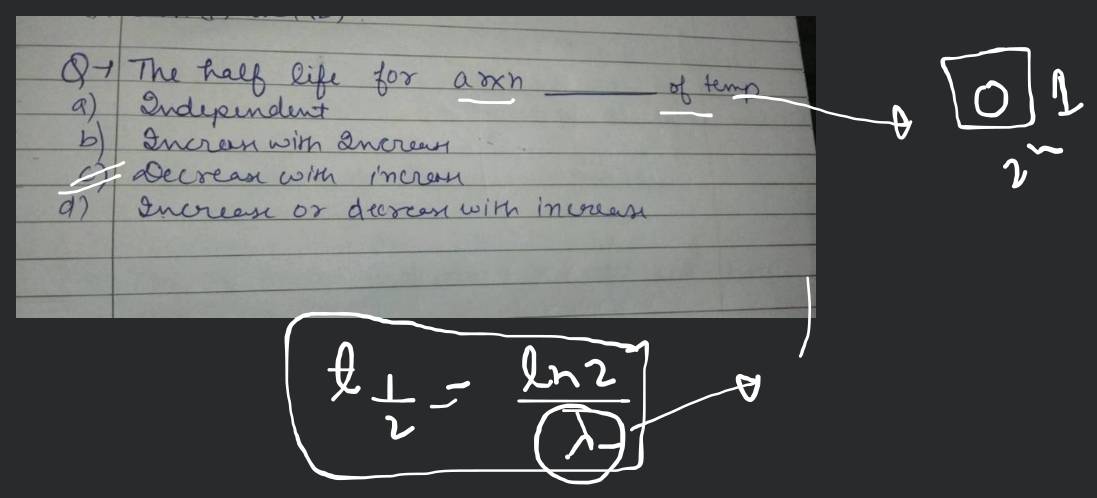 Q→ The half life for a rxn ______ of temp
a) Independent
b) Increase with Increase
c) Decrease with increase
d) Increase or decrease with increase
0 1
2
t 1/2 = ln2/λ